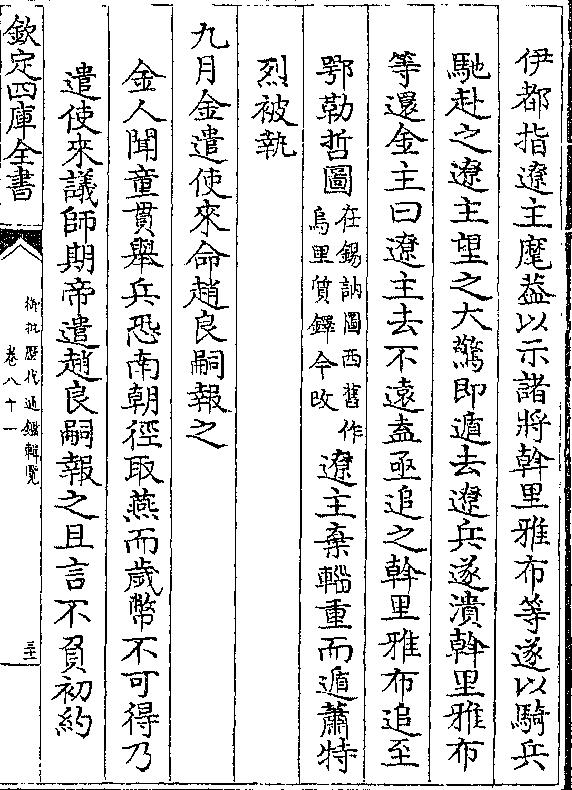 伊都指遼主麾葢以示諸將斡里雅布等遂以騎兵
馳赴之遼主望之大驚即遁去遼兵遂潰斡里雅布
等還金主曰遼主去不遠盍亟追之斡里雅布追至
鄂勒哲圖在錫訥圖西舊作烏里質鐸今改遼主棄輜重而遁蕭特
烈被執
九月金遣使來命趙良嗣報之
金人聞童貫舉兵恐南朝徑取燕而歲幣不可得乃
遣使來議師期帝遣趙良嗣報之且言不負初約
欽定四庫全書
御批歷代通鑑輯覽
卷八十一
三十二